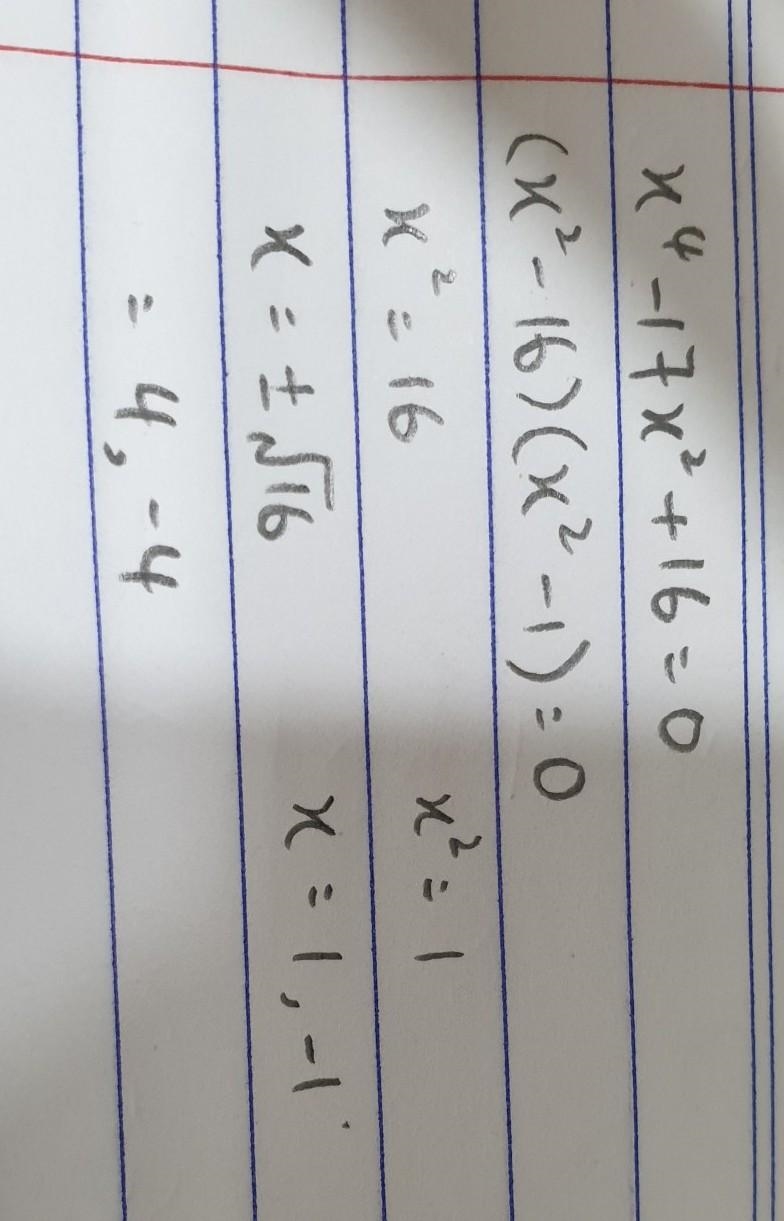 x⁴ - 17x² + 16 = 0
(x² - 16)(x² - 1) = 0
x² = 16 x² = 1
x = ±√16 x = 1, -1.
= 4, -4